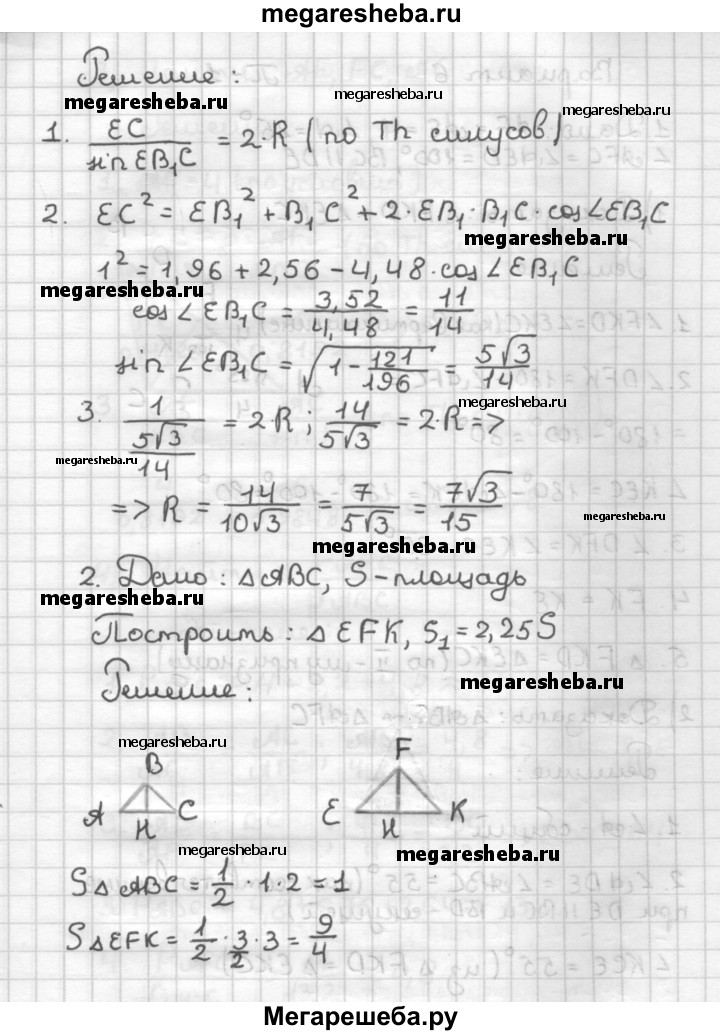 megaresheba.ru
Решение:
megaresheba.ru
megaresheba.ru
megaresheba.ru
1. EC / sin EB₁C = 2·R (по Th синусов)
2. EC² = EB₁² + B₁C² + 2·EB₁·B₁C·cos∠EB₁C
megaresheba.ru
1² = 1,96 + 2,56 − 4,48·cos∠EB₁C
megaresheba.ru
cos∠EB₁C = 3,52/4,48 = 11/14
sin∠EB₁C = √(1 − 121/196) = 5√3/14
megaresheba.ru
3. 1/(5√3/14) = 2·R; 14/(5√3) = 2·R =>
megaresheba.ru
=> R = 14/(10√3) = 7/(5√3) = 7√3/15
megaresheba.ru
megaresheba.ru
2. Дано: △ABC, S-площадь
megaresheba.ru
Построить: △EFK, S₁=2,25S
Решение:
megaresheba.ru
megaresheba.ru
B
F
A
C
E
K
H
H
megaresheba.ru
megaresheba.ru
S△ABC = 1/2 · 1 · 2 = 1
S△EFK = 1/2 · 3/2 · 3 = 9/4
Мегарешеба.ру